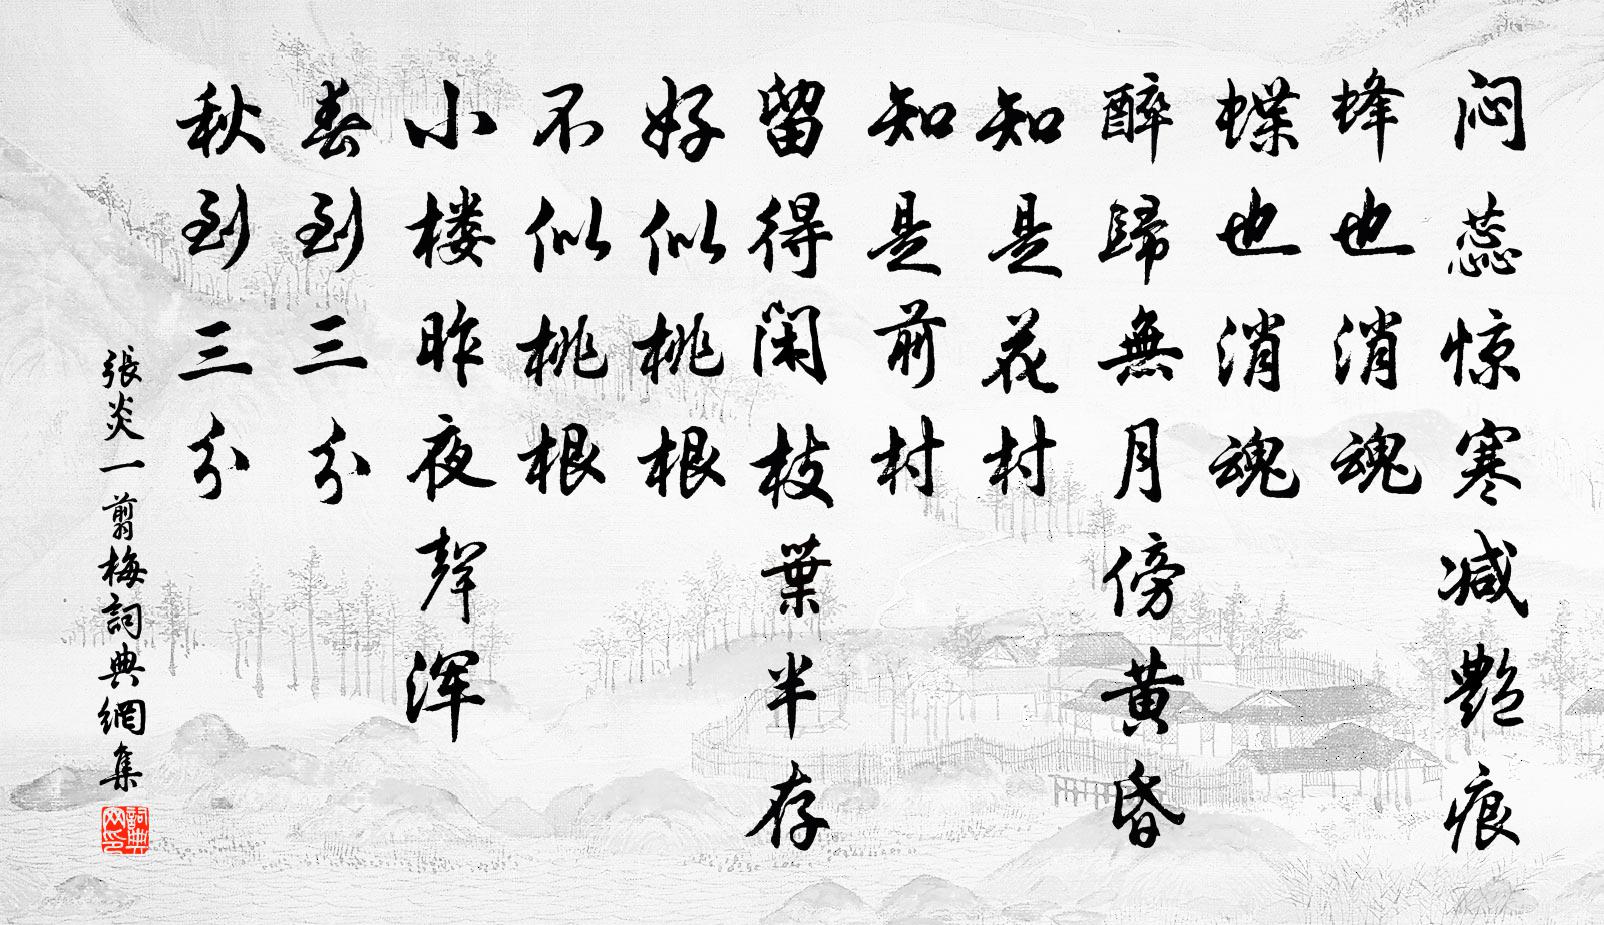 闷蕊惊寒减艷痕
蜂也消魂
蝶也消魂
醉歸無月傍黄昏
知是花村
知是前村
留得闲枝葉半存
好似桃根
不似桃根
小楼昨夜聲浑
春到三分
秋到三分
張炎一剪梅詞典網集
詞典网印